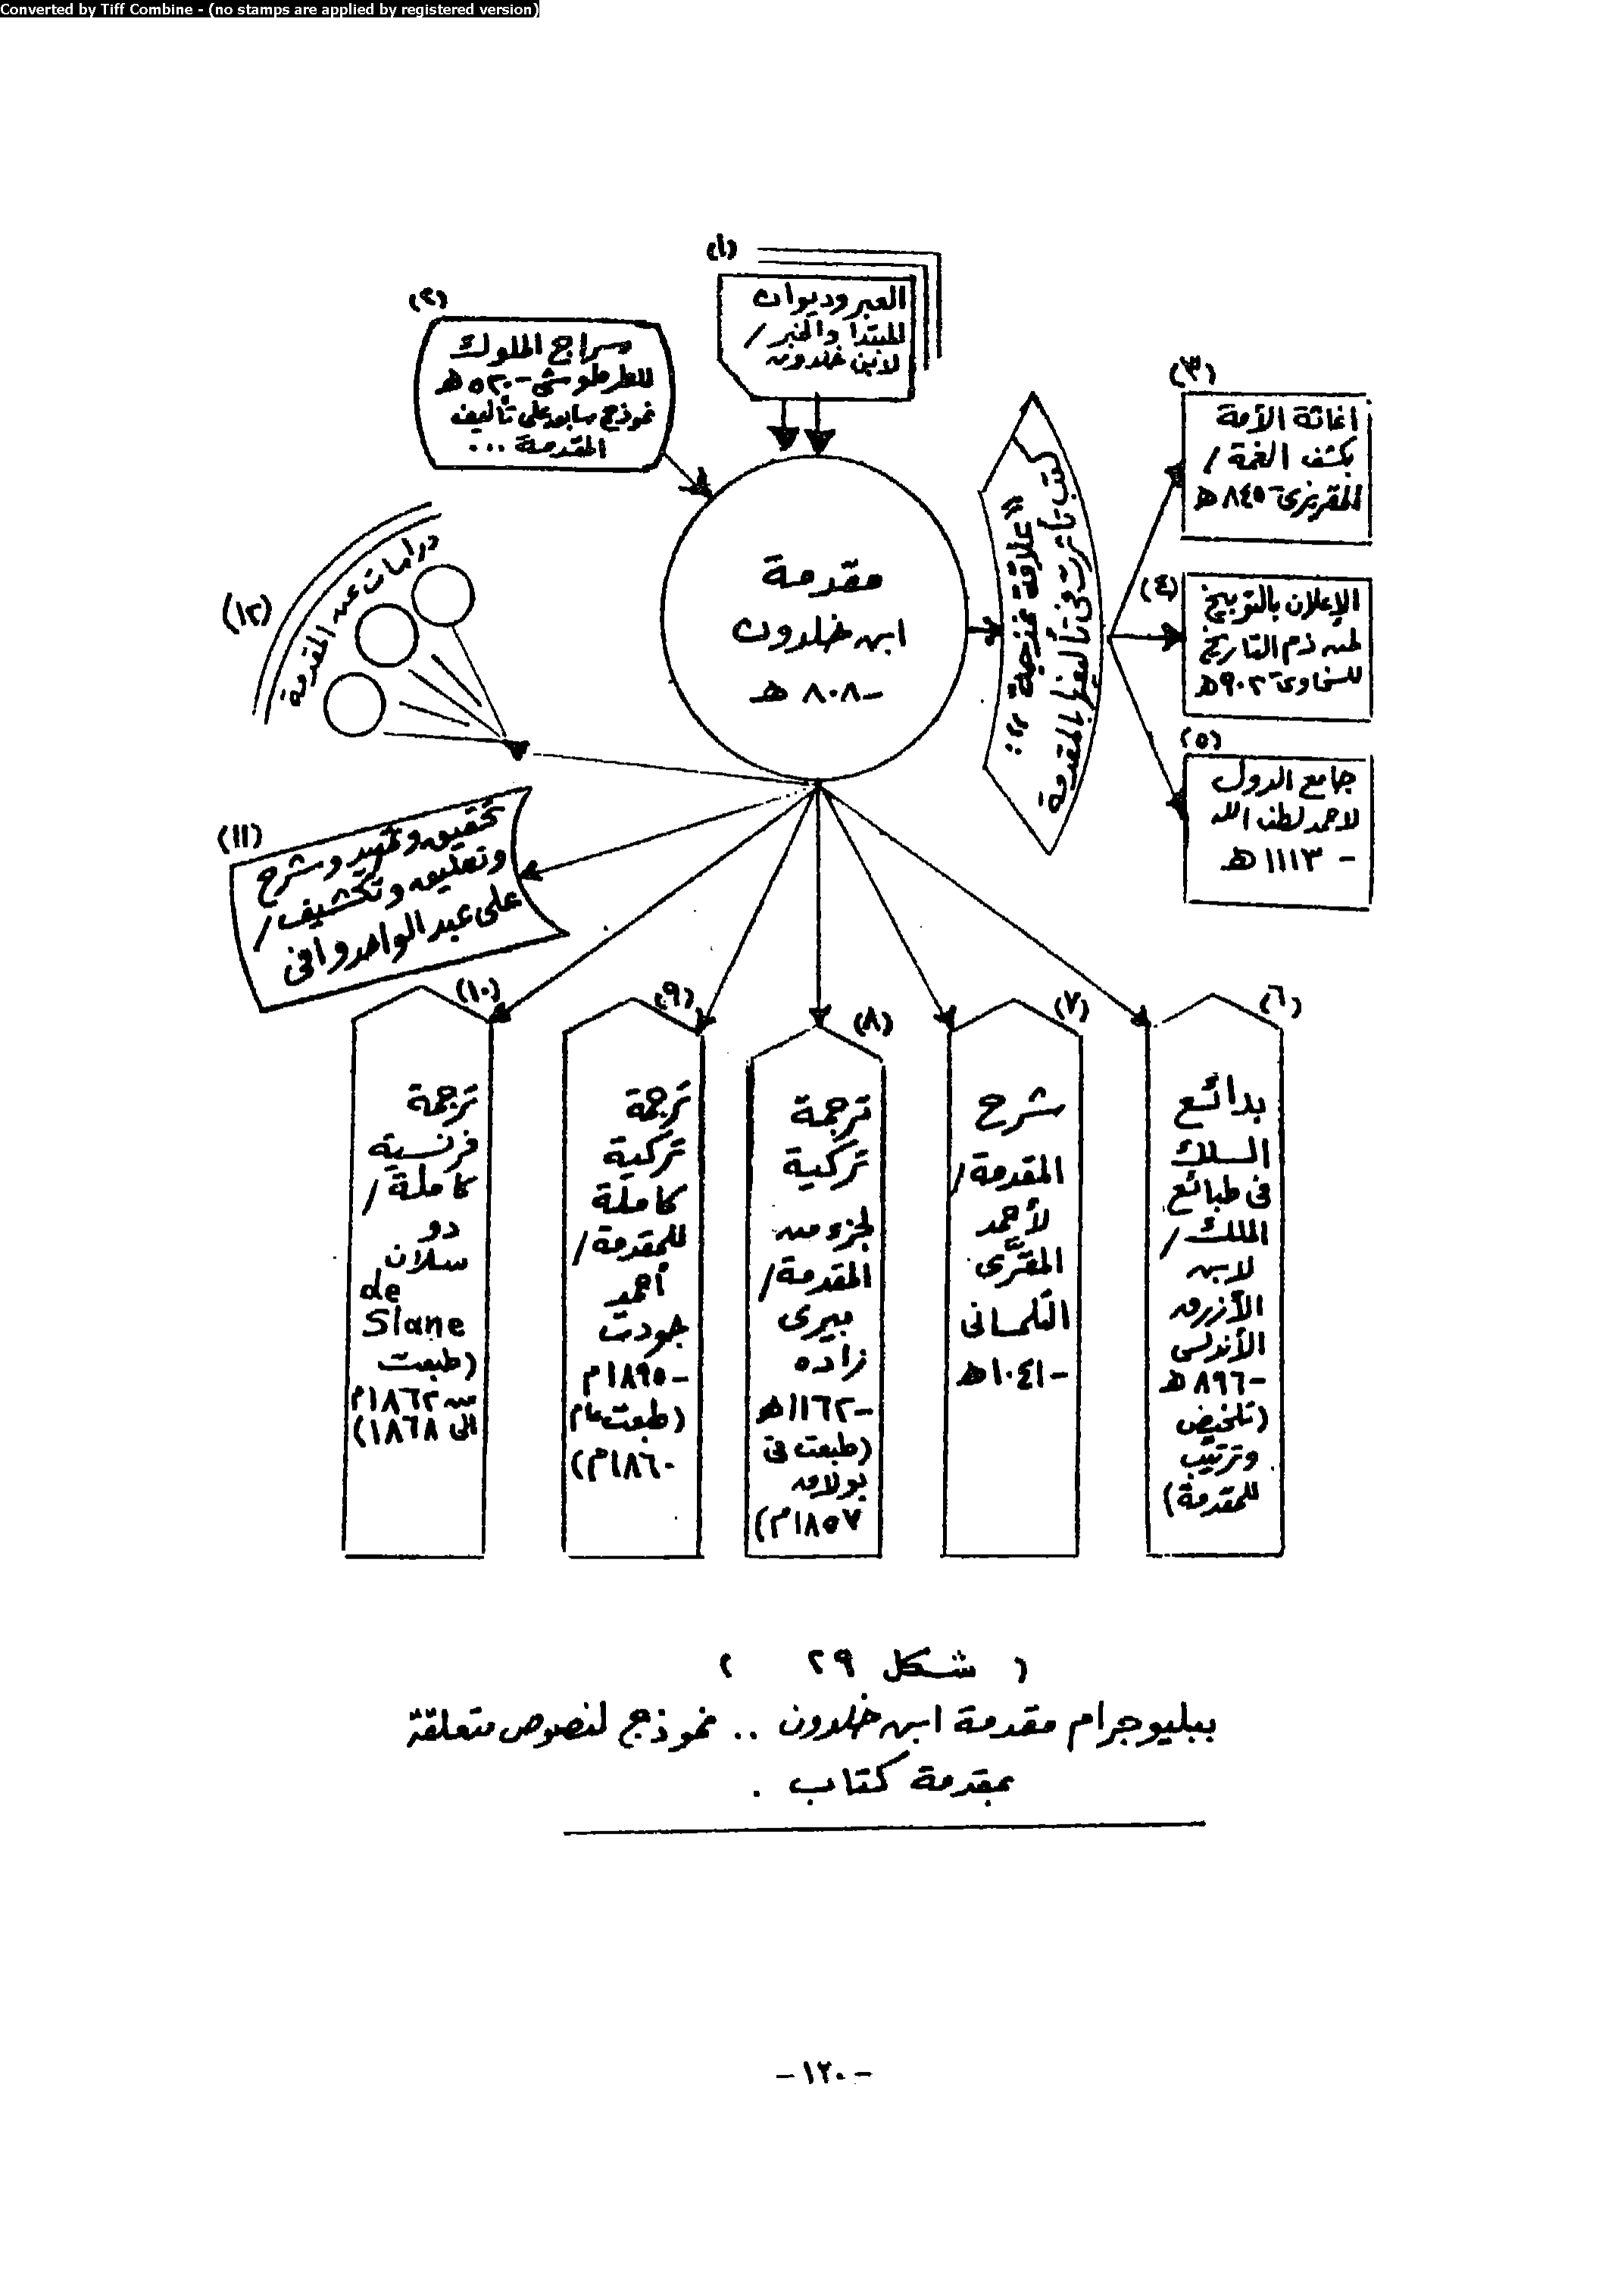 Converted by Tiff Combine - (no stamps are applied by registered version)
(١)
العبر وديوان
المبتدا والخبر /
لابن خلدون
(٢)
سراج الملوك
للطرطوشى -٥٢٠ هـ
نموذج سابق على تأليف
المقدمة ...
مقدمة
ابن خلدون
-٨٠٨ هـ
كتب تأثرت فى تأليفها بالمقدمة
"علاقة نموذجية" :
(٣)
اغاثة الأمة
بكشف الغمة /
المقريزى -٨٤٥ هـ
(٤)
الإعلان بالتوبيخ
لمن ذم التاريخ
للسخاوى -٩٠٢ هـ
(٥)
جامع الدول
لاحمد لطف الله
- ١١١٣ هـ
(٦)
بدائع
السلك
فى طبائع
الملك /
لابن
الأزرق
الأندلسى
-٨٩٦ هـ
(تلخيص
وترتيب
للمقدمة)
(٧)
شرح
المقدمة /
لأحمد
المقّرى
التلمسانى
-١٠٤١ هـ
(٨)
ترجمة
تركية
لجزء من
المقدمة /
بيرى
زاده
-١١٦٢ هـ
(طبعت فى
بولاق
١٨٥٧م)
(٩)
ترجمة
تركية
كاملة
للمقدمة /
أحمد
جودت
-١٨٩٥م
(طبعت عام
١٨٦٠م)
(١٠)
ترجمة
فرنسية
كاملة /
دو
سلان
de
Slane
(طبعت
من ١٨٦٢م
الى ١٨٦٨)
(١١)
تحقيق وتمهيد وشرح
وتعليق وتكشيف /
على عبد الواحد وافى
(١٢)
دراسات عن المقدمة
( شكل ٢٩ )
ببليوجرام مقدمة ابن خلدون .. نموذج لنصوص متعلقة
بمقدمة كتاب .
-١٢٠-